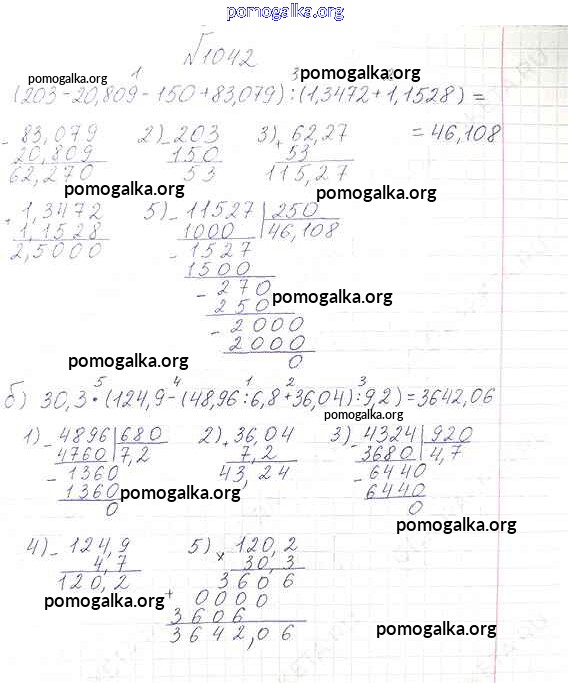 pomogalka.org
№1042
pomogalka.org pomogalka.org
(203-20,809-150+83,079):(1,3472+1,1528)=
= 46,108
- 83,079 2) - 203 3) + 62,27
20,809 150 53
62,270 53 115,27
pomogalka.org pomogalka.org
+ 1,3472 5) - 11527 | 250
1,1528 1000 46,108
2,5000 - 1527
1500
- 270
250 pomogalka.org
- 2000
2000
pomogalka.org 0
5 4 1 2 3
б) 30,3·(124,9-(48,96:6,8+36,04):9,2)=3642,06
pomogalka.org
1) - 4896 | 680 2) + 36,04 3) - 4324 | 920
4760 7,2 7,2 3680 4,7
- 1360 43,24 - 6440
1360 pomogalka.org 6440
0 0
pomogalka.org
4) - 124,9 5) × 120,2
4,7 30,3
120,2 3606
pomogalka.org + 0000
3606
3642,06 pomogalka.org